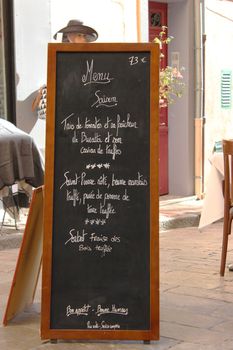 73 €
Menu
Saison
Trio de tomates en fraîcheur
de Buratta et son
caviar de truffes
Saint Pierre rôti, beurre
truffé, purée de pomme de
terre truffée
Sablet Fraise des
Bois truffée
Bon appétit - Bonne Humeur